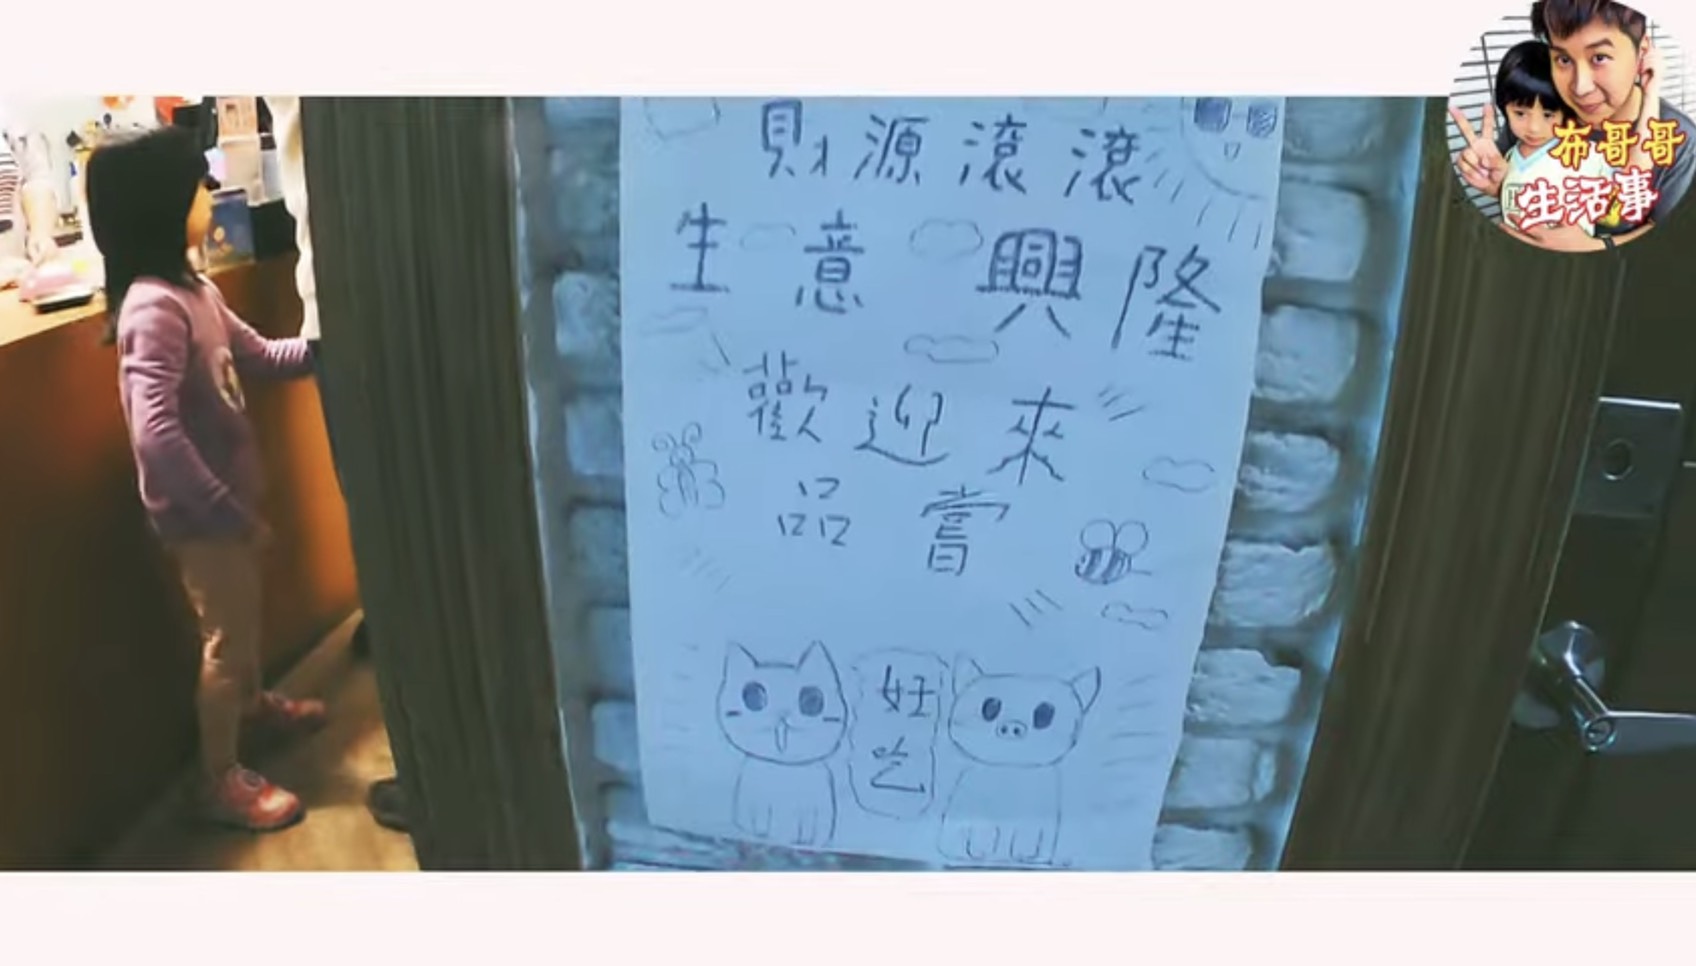 財源滾滾
生意興隆
歡迎來
品嘗
好
吃
布哥哥
生活事